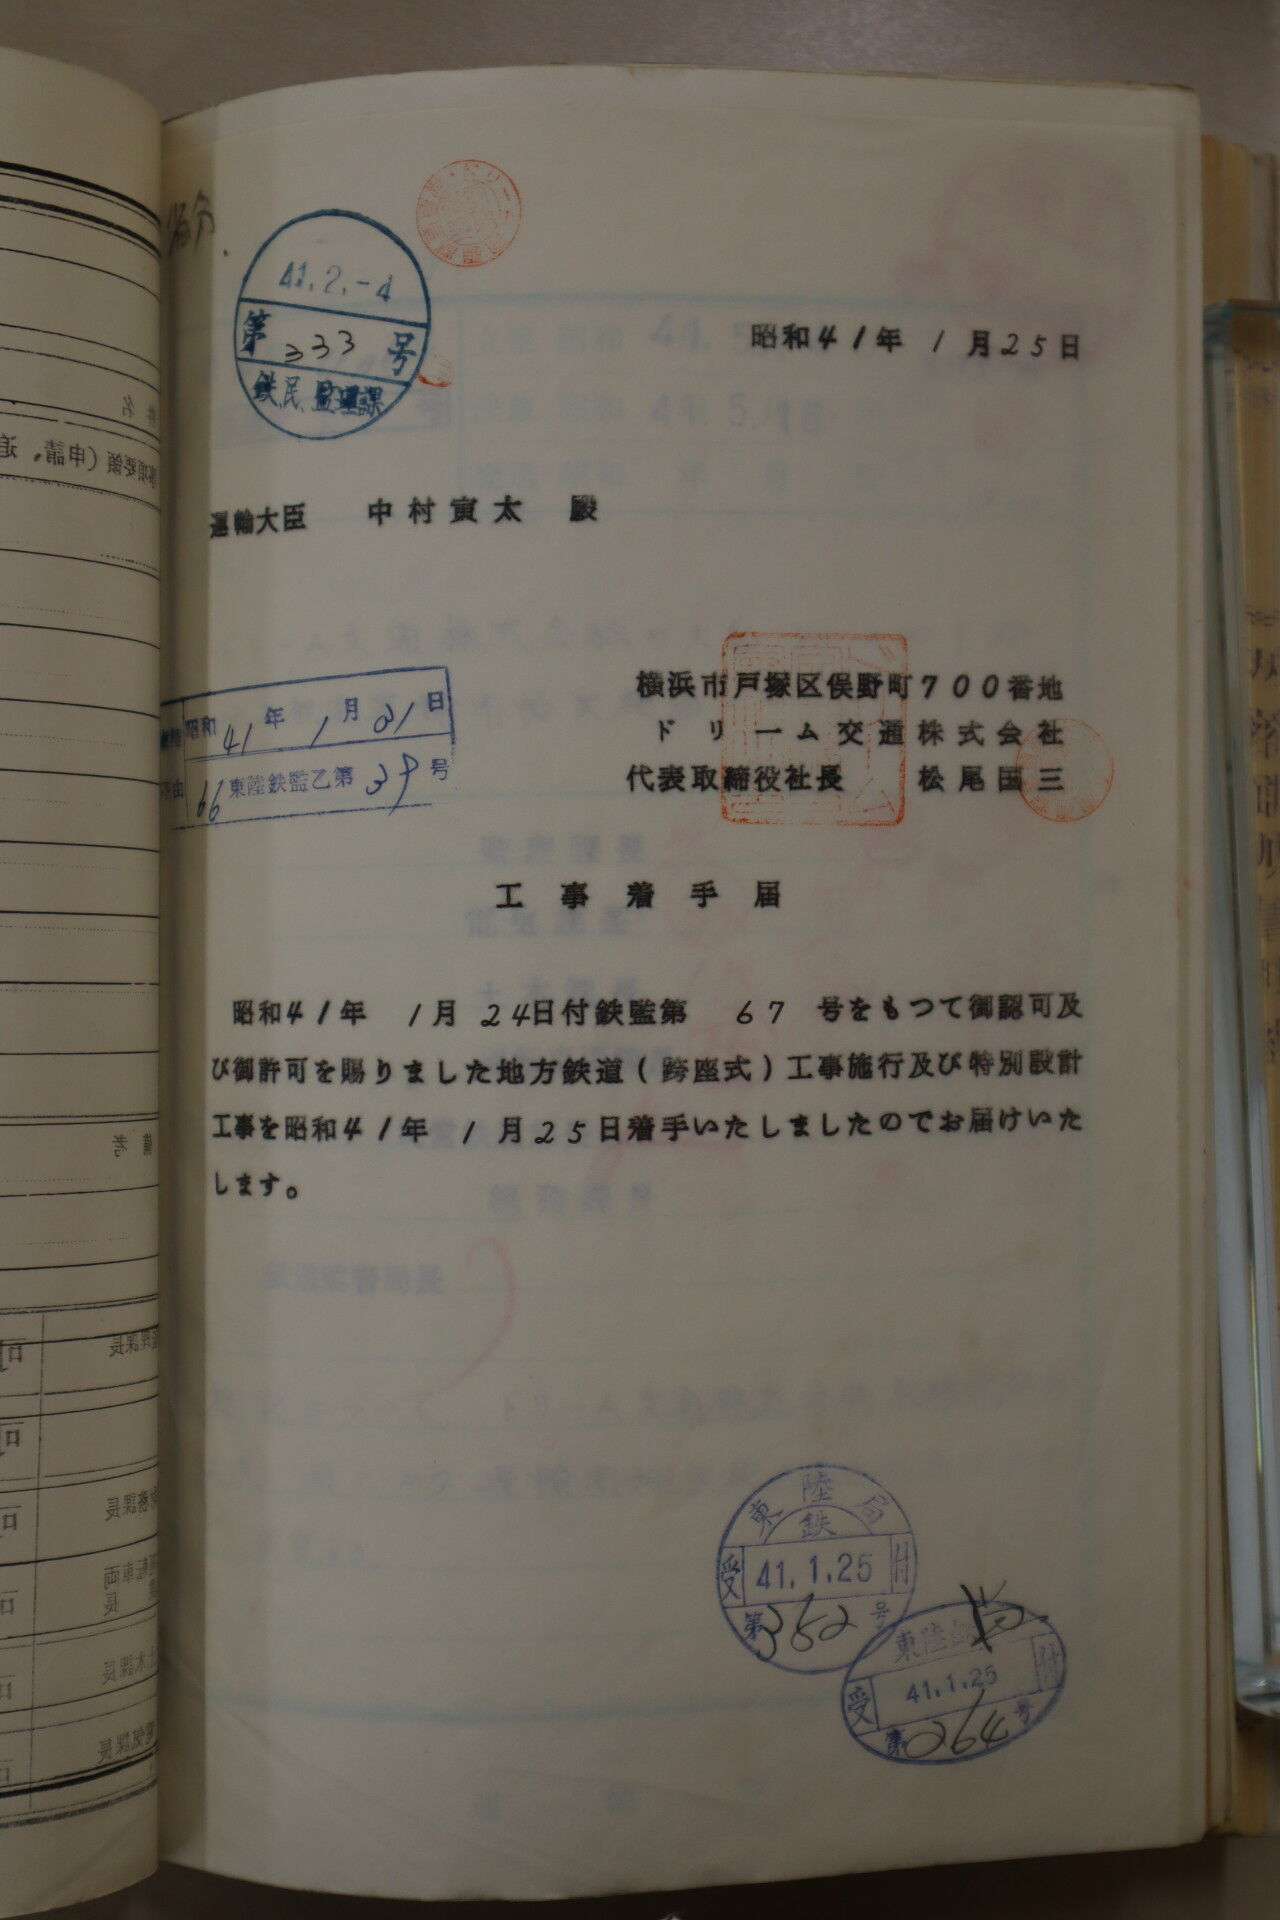 41.2.-4
第333号
鉄民監理課
昭和41年 1月25日
運輸大臣 中村寅太 殿
昭和41年1月31日
66東陸鉄監乙第39号
横浜市戸塚区俣野町700番地
ドリーム交通株式会社
代表取締役社長 松尾国三
工事着手届
昭和41年 1月24日付鉄監第 67 号をもつて御認可及
び御許可を賜りました地方鉄道(跨座式)工事施行及び特別設計
工事を昭和41年 1月25日着手いたしましたのでお届けいた
します。
東陸局
鉄
受 41.1.25 付
第352号
東陸
受 41.1.25 付
第264号
件名
事項要領(申請。追
備考
監理課長
総務課長
運転車両
長
土木課長
電気課長